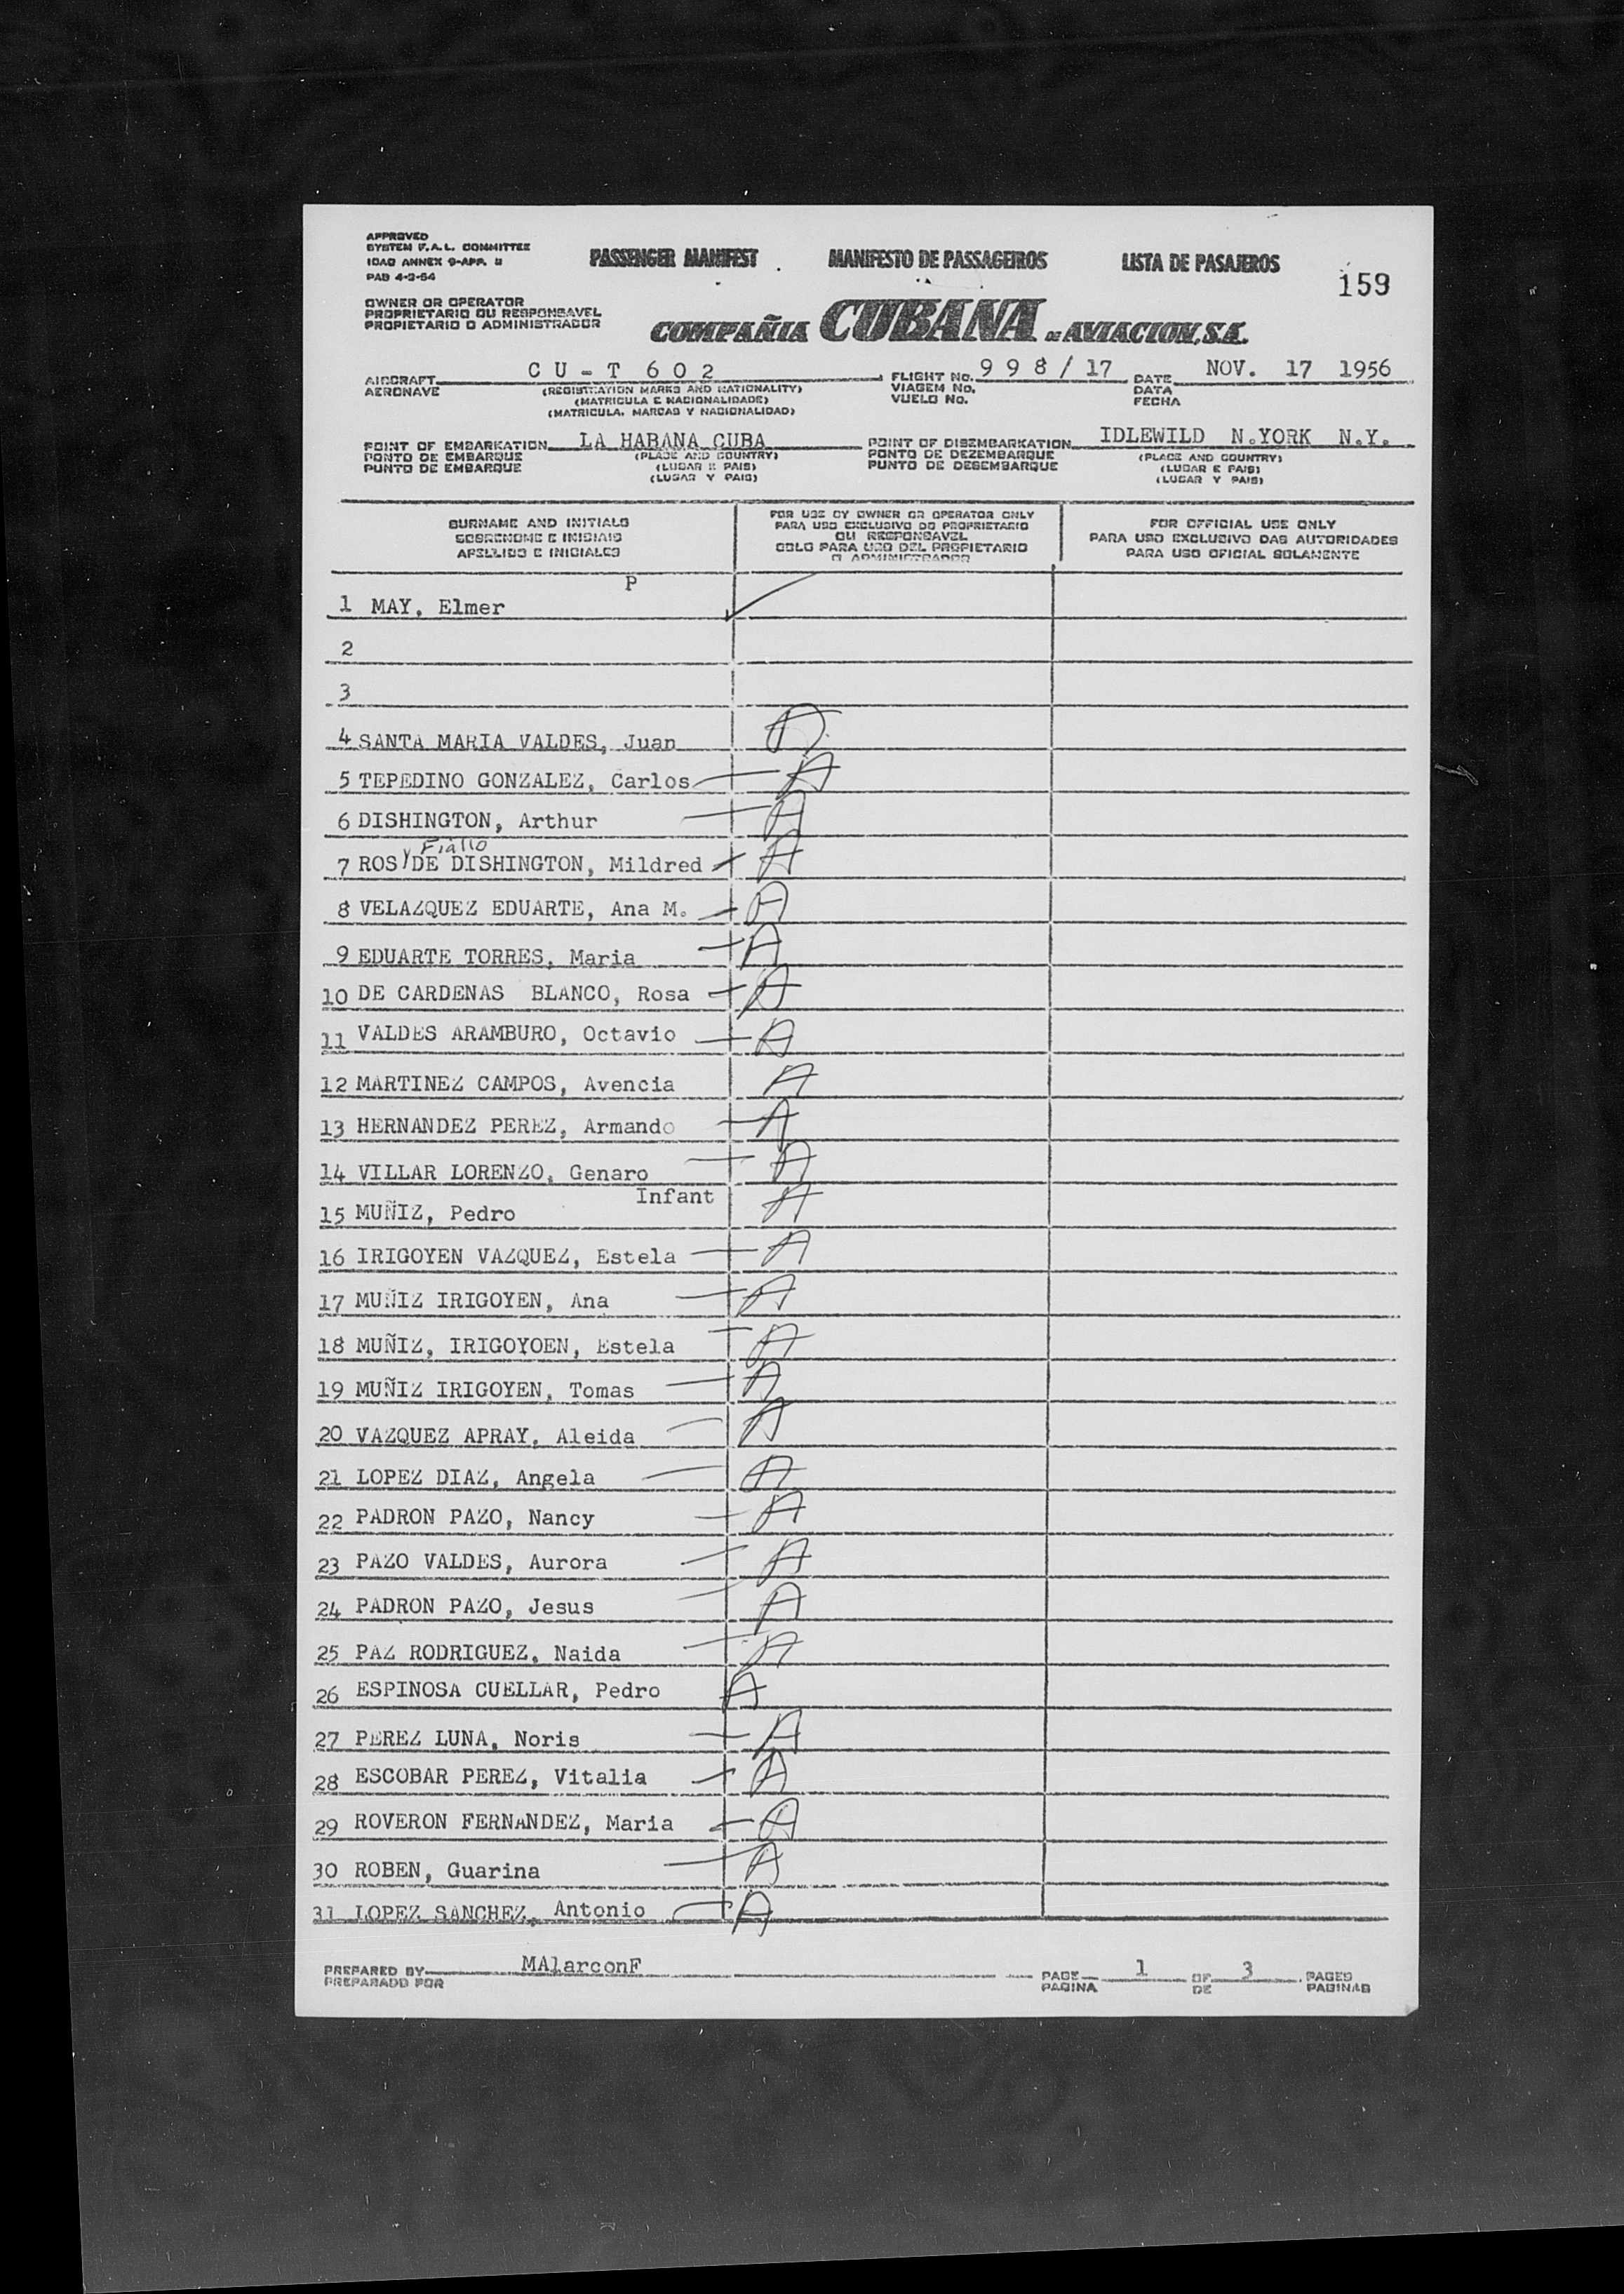 APPROVED
SYSTEM F.A.L. COMMITTEE
ICAO ANNEX 9-APP.
PAB 4-2-54
PASSENGER MANIFEST MANIFESTO DE PASSAGEIROS LISTA DE PASAJEROS
159
OWNER OR OPERATOR
PROPRIETARIO OU RESPONSAVEL
PROPIETARIO O ADMINISTRADOR
COMPAÑIA CUBANA DE AVIACION, S.A.
AIRCRAFT CU-T 602 FLIGHT No. 998/17 DATE NOV. 17 1956
AERONAVE (REGISTRATION MARKS AND NATIONALITY) VIAGEM No. DATA
(MATRICULA E NACIONALIDADE) VUELO No. FECHA
(MATRICULA, MARCAS Y NACIONALIDAD)
POINT OF EMBARKATION LA HABANA CUBA POINT OF DISEMBARKATION IDLEWILD N.YORK N.Y.
PONTO DE EMBARQUE (PLACE AND COUNTRY) PONTO DE DEZEMBARQUE (PLACE AND COUNTRY)
PUNTO DE EMBARQUE (LUGAR E PAIS) PUNTO DE DESEMBARQUE (LUGAR E PAIS)
(LUGAR Y PAIS) (LUGAR Y PAIS)
SURNAME AND INITIALS
SOBRENOME E INICIAIS
APELLIDO E INICIALES
FOR USE BY OWNER OR OPERATOR ONLY
PARA USO EXCLUSIVO DO PROPRIETARIO
OU RESPONSAVEL
SOLO PARA USO DEL PROPIETARIO
O ADMINISTRADOR
FOR OFFICIAL USE ONLY
PARA USO EXCLUSIVO DAS AUTORIDADES
PARA USO OFICIAL SOLAMENTE
P
1 MAY, Elmer
2
3
4 SANTA MARIA VALDES, Juan A
5 TEPEDINO GONZALEZ, Carlos A
6 DISHINGTON, Arthur A
y Fiallo
7 ROS DE DISHINGTON, Mildred A
8 VELAZQUEZ EDUARTE, Ana M. A
9 EDUARTE TORRES, Maria A
10 DE CARDENAS BLANCO, Rosa A
11 VALDES ARAMBURO, Octavio A
12 MARTINEZ CAMPOS, Avencia A
13 HERNANDEZ PEREZ, Armando A
14 VILLAR LORENZO, Genaro A
Infant
15 MUÑIZ, Pedro A
16 IRIGOYEN VAZQUEZ, Estela A
17 MUÑIZ IRIGOYEN, Ana A
18 MUÑIZ, IRIGOYOEN, Estela A
19 MUÑIZ IRIGOYEN, Tomas A
20 VAZQUEZ APRAY, Aleida A
21 LOPEZ DIAZ, Angela A
22 PADRON PAZO, Nancy A
23 PAZO VALDES, Aurora A
24 PADRON PAZO, Jesus A
25 PAZ RODRIGUEZ, Naida A
26 ESPINOSA CUELLAR, Pedro A
27 PEREZ LUNA, Noris A
28 ESCOBAR PEREZ, Vitalia A
29 ROVERON FERNANDEZ, Maria A
30 ROBEN, Guarina A
31 LOPEZ SANCHEZ, Antonio A
PREPARED BY MAlarconF PAGE 1 OF 3 PAGES
PREPARADO POR PAGINA DE PAGINAS